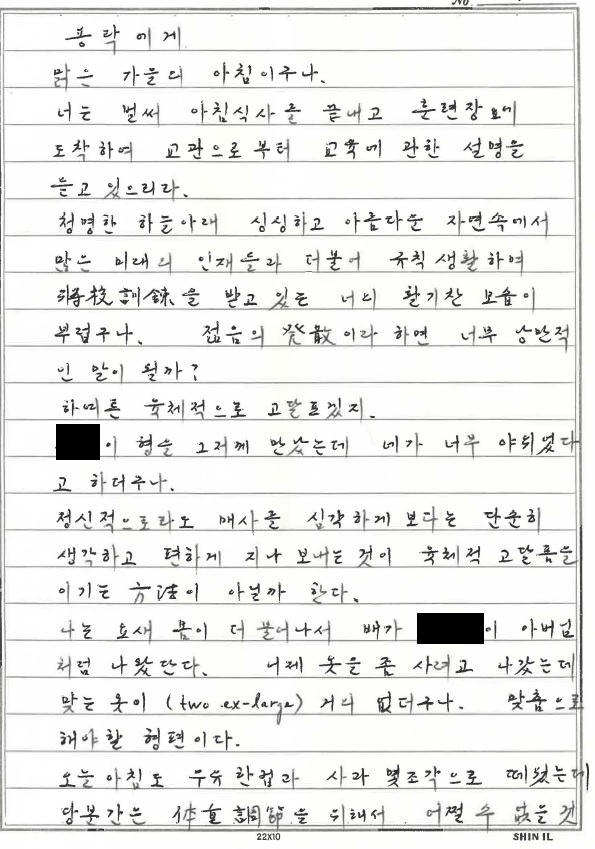 No.
용락에게
맑은 가을의 아침이구나.
너는 벌써 아침식사를 끝내고 훈련장에
도착하여 교관으로부터 교육에 관한 설명을
듣고 있으리라.
청명한 하늘아래 싱싱하고 아름다운 자연속에서
많은 미래의 인재들과 더불어 규칙생활하여
將校訓鍊을 받고 있는 너의 활기찬 모습이
부럽구나. 젊음의 發散이라 하면 너무 낭만적
인 말이 될까?
하여튼 육체적으로 고달프겠지.
이 형을 그저께 만났는데 네가 너무 야위었다
고 하더구나.
정신적으로라도 매사를 심각하게 보다는 단순히
생각하고 편하게 지나 보내는 것이 육체적 고달픔을
이기는 方法이 아닐까 한다.
나는 요새 몸이 더 불어나서 배가 이 아버님
처럼 나왔단다. 어제 옷을 좀 사려고 나갔는데
맞는 옷이 (two ex-large) 거의 없더구나. 맞춤으로
해야할 형편이다.
오늘 아침도 우유 한컵과 사과 몇조각으로 떼웠는데
당분간은 体重調節을 위해서 어쩔 수 없을 것
22X10
SHIN IL